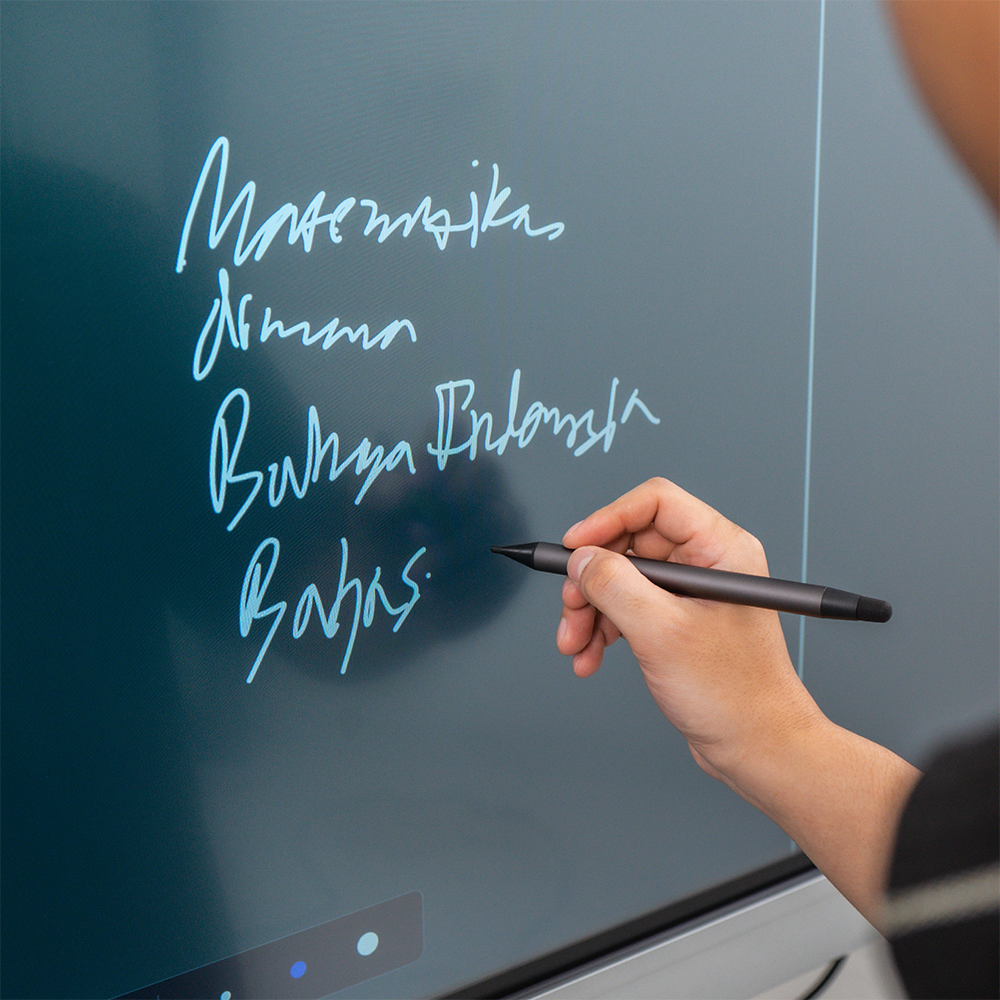 Matematika
dimana
Bahaya Indonesia
Bahas.